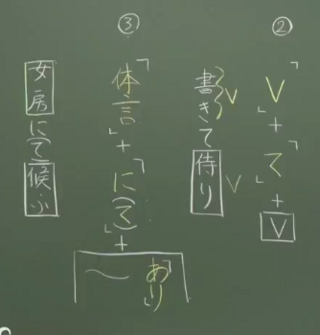 ②
「V」+「て」+V
V V
書きて侍り
③
「体言」+「に(て)」+「あり」
〜
女房に(て)候ふ